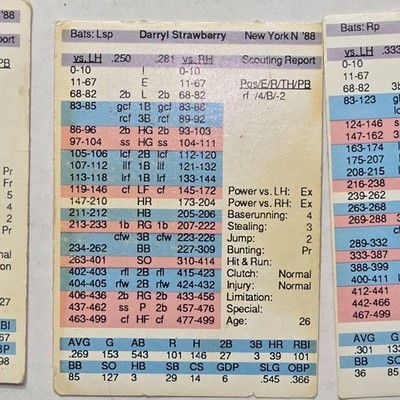 '88
port
PB
Pr
Fr
5
4
2
mal
ion
27
RBI
67
OBP
.298
Bats: Lsp Darryl Strawberry New York N '88
vs. LH .250 .281 vs. RH Scouting Report
0-10 I 0-10
11-67 E 11-67 Pos/E/R/TH/PB
68-82 2b L 2b 68-82 rf /4/B/-2
83-85 gcf 1B gcf 83-88
rcf 3B rcf 89-92
86-96 2b HG 2b 93-103
97-104 ss HG ss 104-111
105-106 lcf 2B lcf 112-120
107-112 llf 1B llf 121-132
113-118 rlf 1B rlf 133-144
119-146 cf LF cf 145-172 Power vs. LH: Ex
147-210 HR 173-204 Power vs. RH: Ex
211-212 HB 205-206 Baserunning: 4
213-233 1b RG 1b 207-222 Stealing: 3
cfw 3B cfw 223-226 Jump: 2
234-262 BB 227-309 Bunting: Pr
263-401 SO 310-414 Hit & Run:
402-403 rfl 2B rfl 415-423 Clutch: Normal
404-405 rlf 2B rlf 424-432 Injury: Normal
406-436 2b RG 2b 433-456 Limitation:
437-462 ss P 2b 457-476 Special:
463-499 cf HF cf 477-499 Age: 26
AVG G AB R H 2B 3B HR RBI
.269 153 543 101 146 27 3 39 101
BB SO HB SB CS GDP SLG OBP
85 127 3 29 14 6 .545 .366
Bats: Rp
vs. LH .333
0-10
11-67
68-82
83-123
124-146
147-162
163-174
175-207
208-215
216-238
239-262
263-268
269-288
289-332
333-387
388-399
400-411
412-436
437-462
463-499
AVG G
.301
BB SO
36